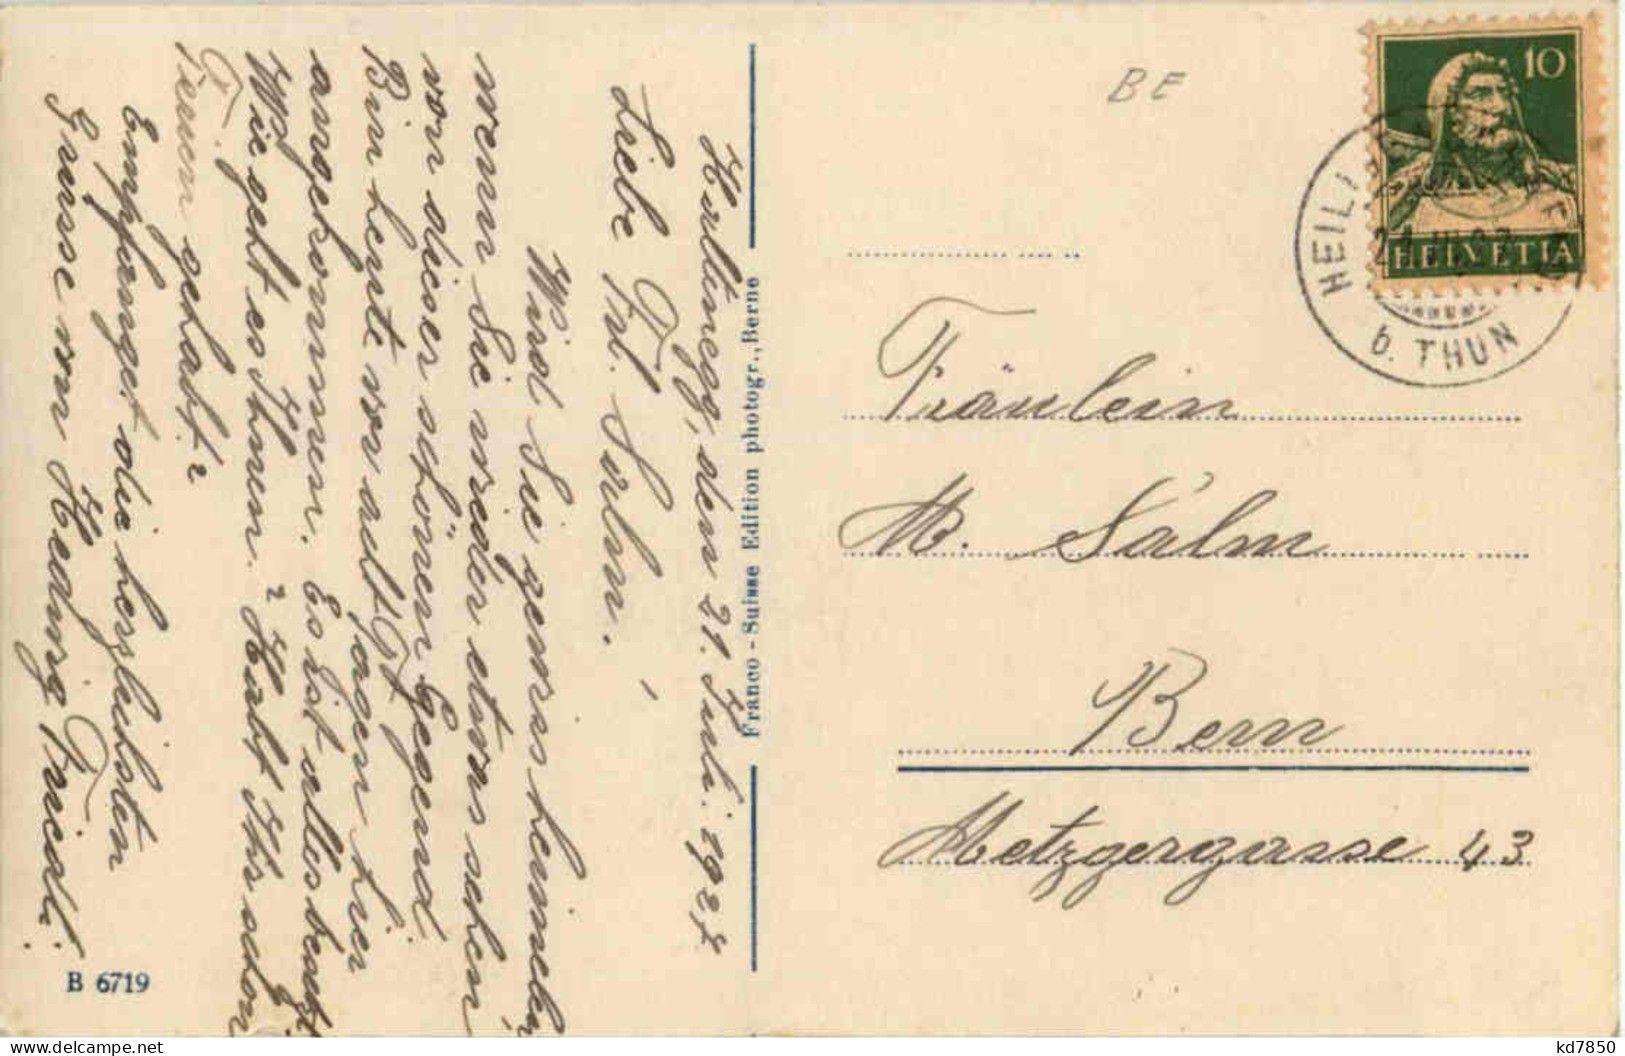 Haltenegg, den 21. Juli. 1927
Liebe Frl. Salm.
Wird Sie gewiss heimeln,
wenn Sie wieder etwas sehen
von dieser schönen Gegend.
Bin heute vor acht Tagen hier
angekommen. Es ist alles besetzt
Wie geht es Ihnen? Habt Ihr schon
Ferien gehabt?
Empfanget die herzlichsten
Grüsse von Hedwig Friedli.
B 6719
Franco-Suisse Edition photogr., Berne
BE
10
HELVETIA
HEILI
b. THUN
Fräulein
M. Salm
Bern
Metzgergasse 43
kd7850